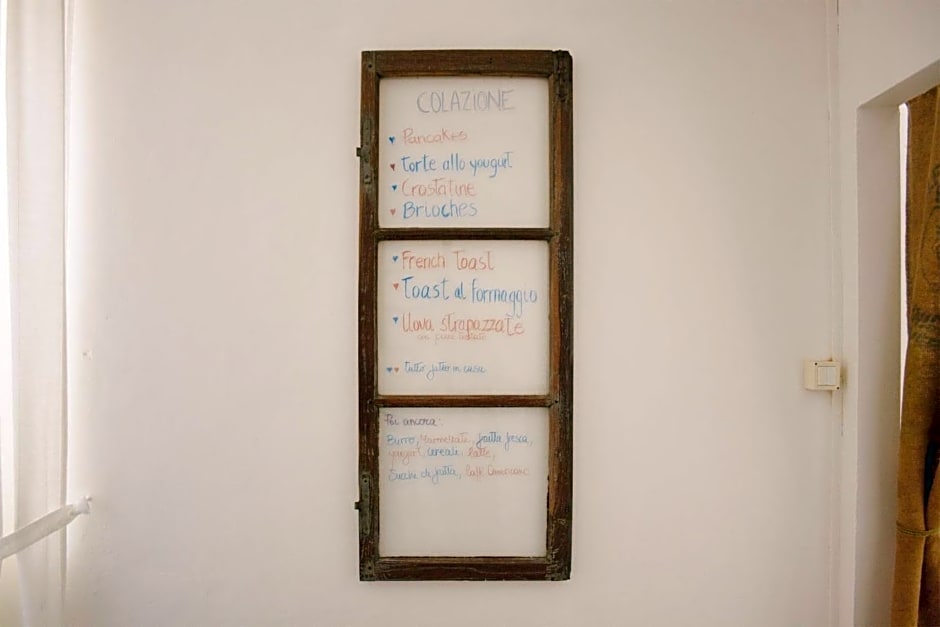 COLAZIONE
Pancakes
Torte allo yougurt
Crostatine
Brioches
French Toast
Toast al formaggio
Uova strapazzate
con pane tostato
tutto fatto in casa
Poi ancora:
Burro, Marmellate, frutta fresca,
yougurt, cereali, latte,
Succhi di frutta, Caffè Americano